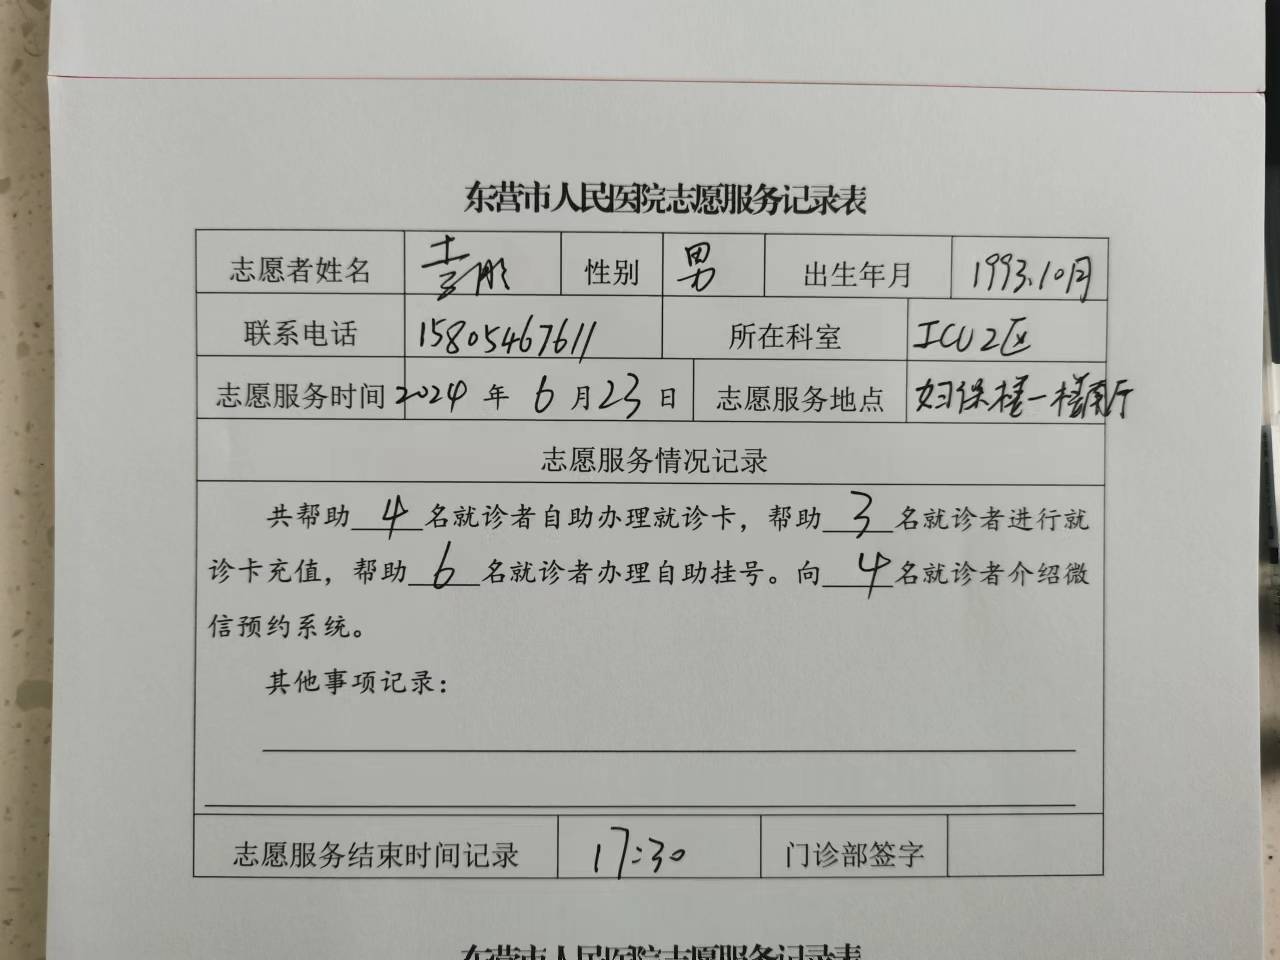 东营市人民医院志愿服务记录表
志愿者姓名 性别 男 出生年月 1993.10月
联系电话 15805467611 所在科室 ICU2区
志愿服务时间 2024 年 6 月 23 日 志愿服务地点 妇保楼一楼南厅
志愿服务情况记录
共帮助 4 名就诊者自助办理就诊卡，帮助 3 名就诊者进行就
诊卡充值，帮助 6 名就诊者办理自助挂号。向 4 名就诊者介绍微
信预约系统。
其他事项记录：
志愿服务结束时间记录 17:30 门诊部签字
东营市人民医院志愿服务记录表